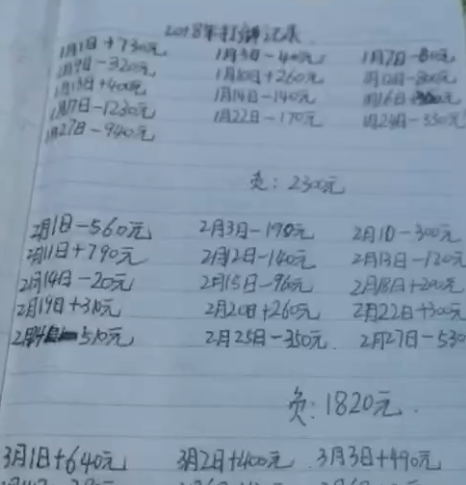 2018年打牌记录
1月1日+730元 1月3日-40元 1月7日-80元
1月9日-320元 1月10日+260元
1月13日+400元 1月14日-140元 1月16日
1月17日-1230元 1月22日-170元 1月24日-330元
1月27日-940元
负:2300元
2月1日-560元 2月3日-190元 2月10-300元
2月11日+790元 2月12日-140元 2月13日-120元
2月14日-20元 2月15日-960元 2月18日+200元
2月19日+310元 2月20日+260元 2月22日+300元
510元 2月25日-350元. 2月27日-530
负:1820元.
3月1日+640元 3月2日+400元 3月3日+490元